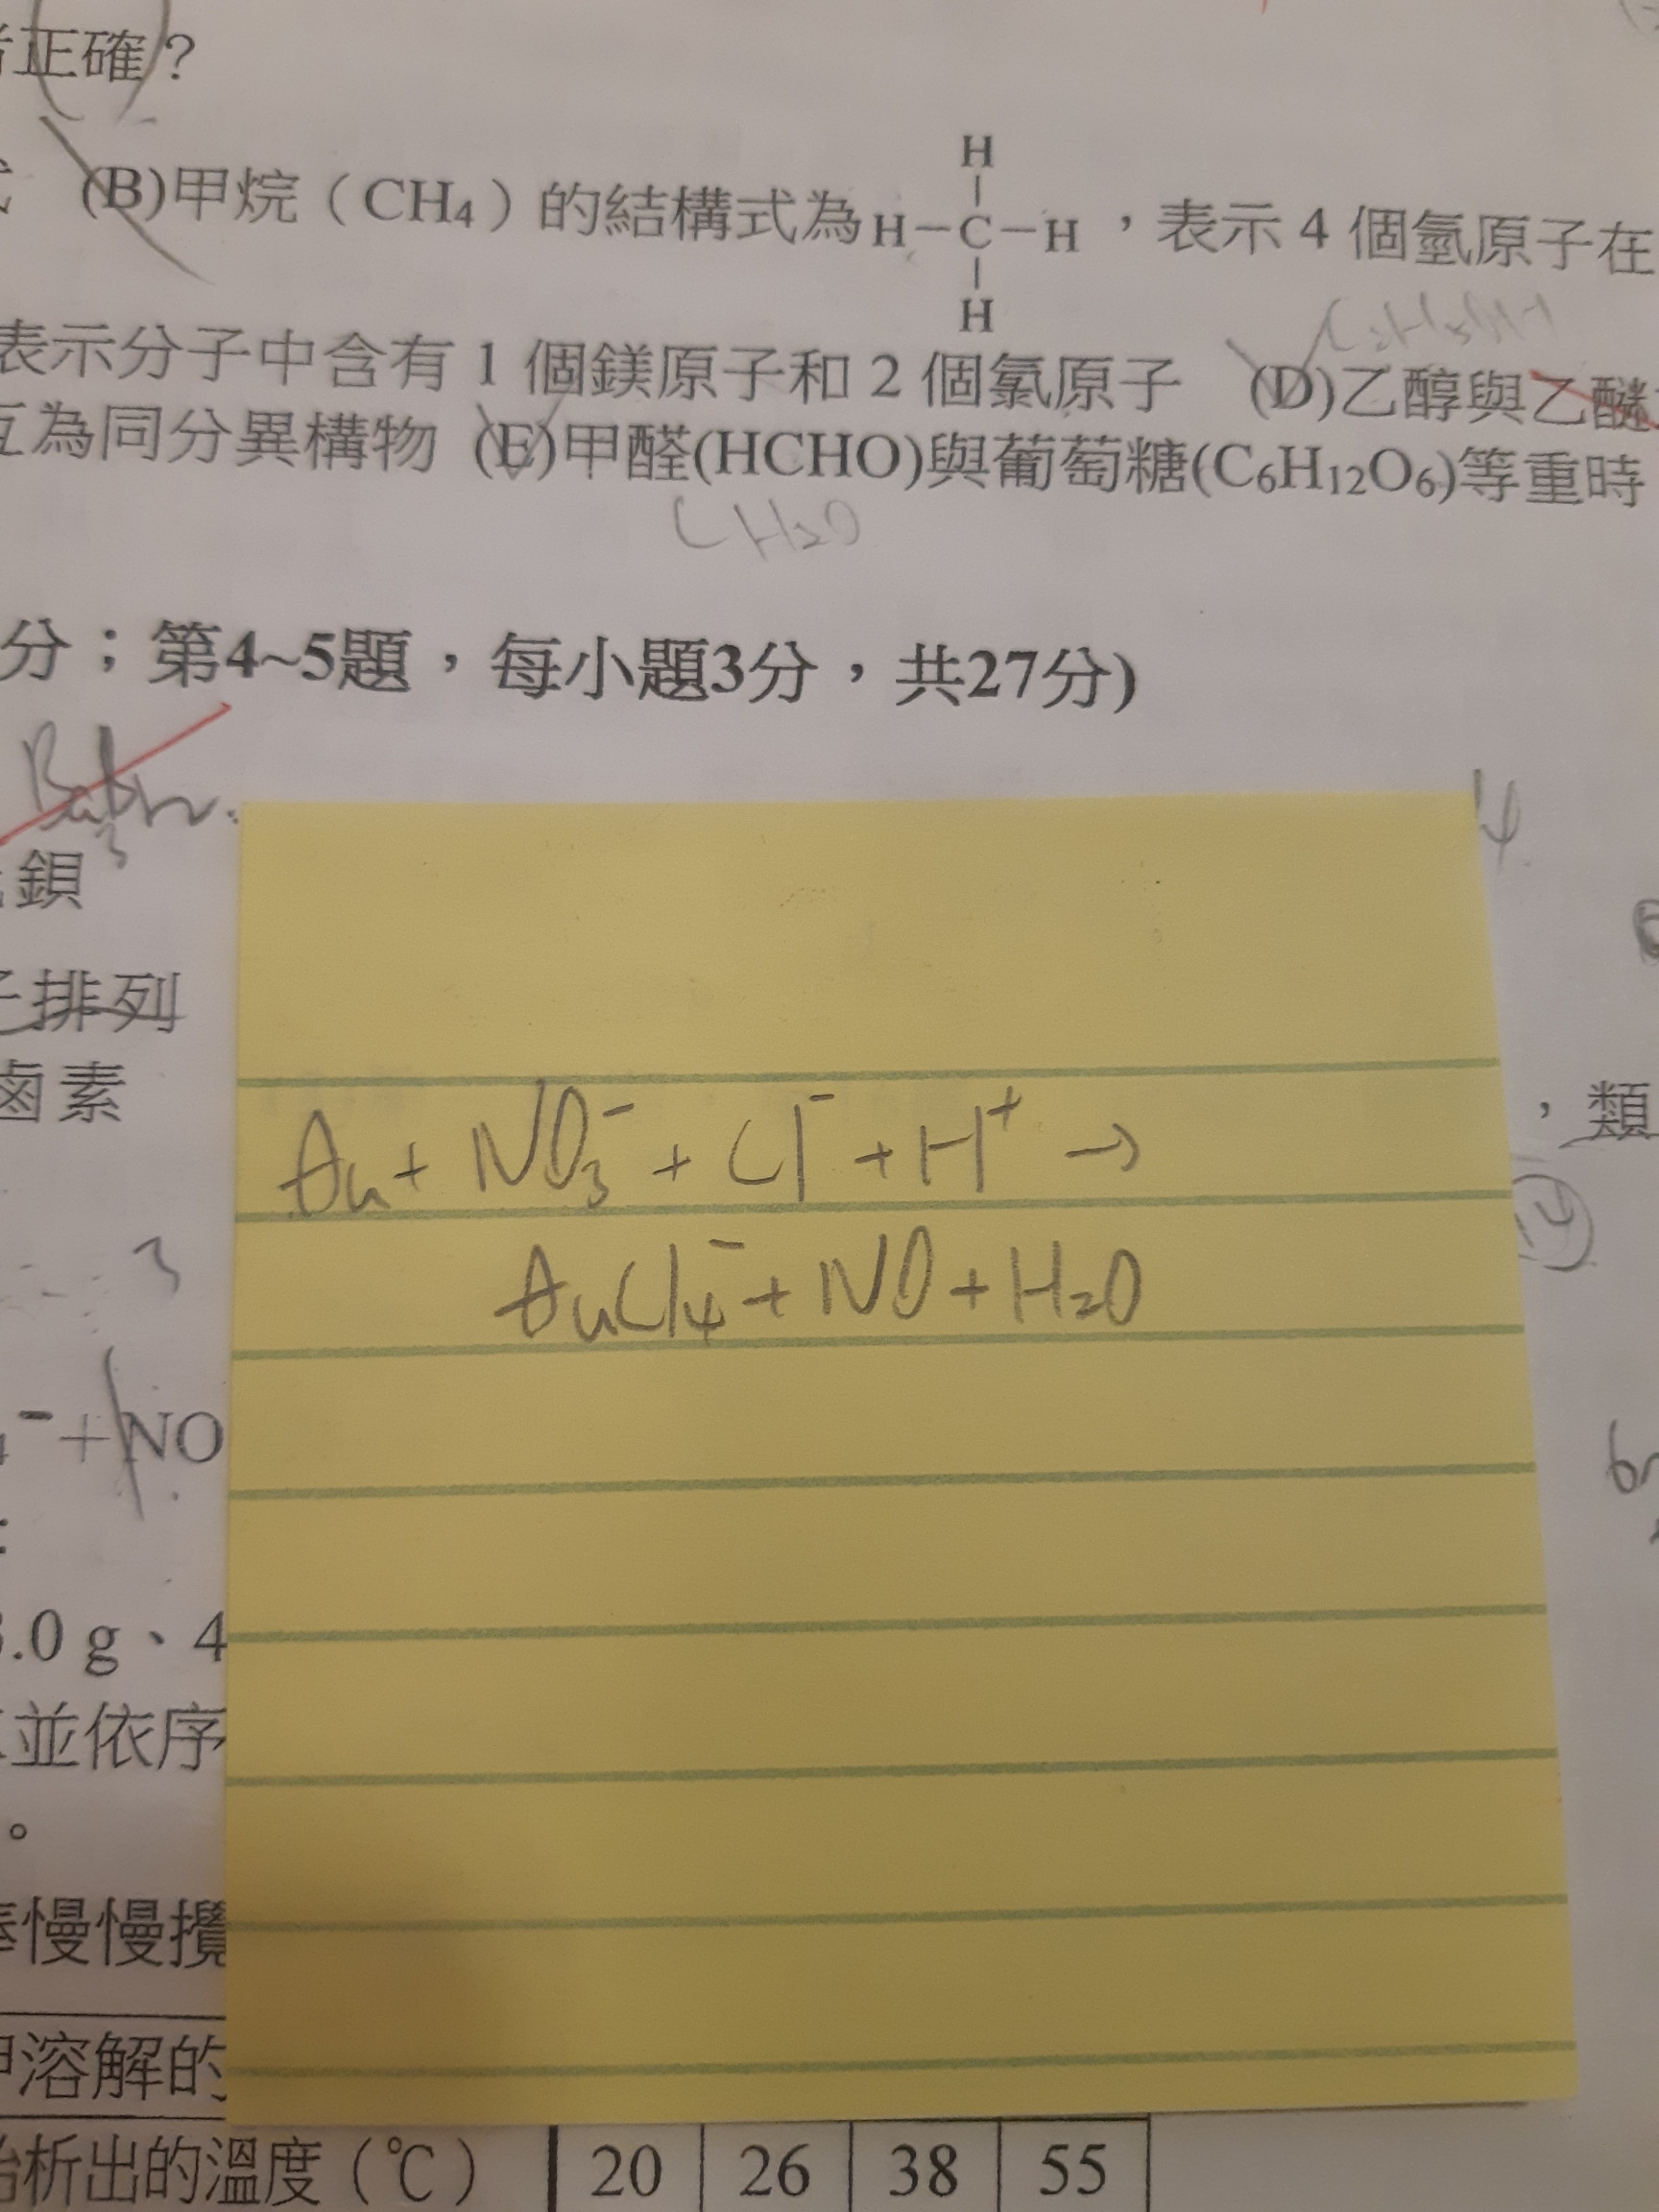 正確？
H
(B)甲烷（CH₄）的結構式為H－C－H，表示 4 個氫原子在
H
表示分子中含有 1 個鎂原子和 2 個氯原子 (D)乙醇與乙醚
互為同分異構物 (E)甲醛(HCHO)與葡萄糖(C₆H₁₂O₆)等重時
CH₂O
分；第4~5題，每小題3分，共27分)
4
鋇
排列
鹵素
，類
Au + NO₃⁻ + Cl⁻ + H⁺ →
14
AuCl₄⁻ + NO + H₂O
3
⁻+NO
.0 g、4
並依序
。
慢慢攪
溶解的
析出的溫度（℃） 20 26 38 55